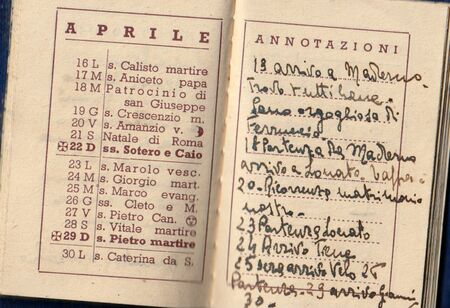 APRILE
16 L s. Calisto martire
17 M s. Aniceto papa
18 M Patrocinio di
san Giuseppe
19 G s. Crescenzio m.
20 V s. Amanzio v.
21 S Natale di Roma
22 D ss. Sotero e Caio
23 L s. Marolo vesc.
24 M s. Giorgio mart.
25 M s. Marco evang.
26 G ss. Cleto e M.
27 V s. Pietro Can.
28 S s. Vitale martire
29 D s. Pietro martire
30 L s. Caterina da S.
ANNOTAZIONI
13 arrivo a Maderno.
Trovo tutti bene.
Sono orgogliosa di
Ferruccio
18 Partenza da Maderno
arrivo a Lonato
20. Ricorrenza matrimonio
nostro.
23 Partenza Lonato
24 Arrivo Tene
25
Partenza 29 arrivo
30.